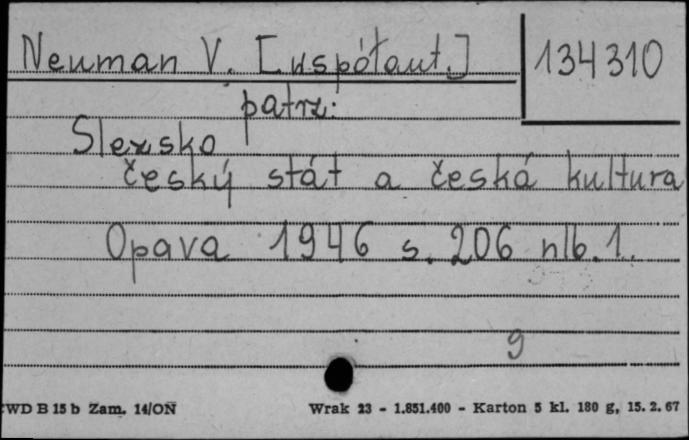 Neuman V. [współaut.]
134310
patrz:
Slezsko
český stát a česká kultura
Opava 1946 s. 206 nlb. 1.
9
WD B 15 b Zam. 14/ON
Wrak 23 - 1.851.400 - Karton 5 kl. 180 g, 15. 2. 67